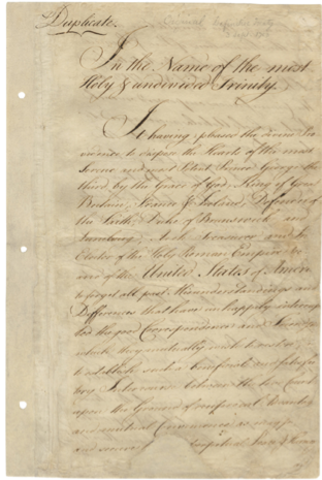 Duplicate.
In the Name of the most
Holy & undivided Trinity.
It having pleased the divine Pro
vidence to dispose the Hearts of the most
Serene and most Potent Prince George the
third, by the Grace of God, King of Great
Britain, France & Ireland, Defender of
the Faith, Duke of Brunswick and
Lunebourg, Arch Treasurer and
Elector of the Holy Roman Empire
and of the United States of America
to forget all past Misunderstandings and
Differences that have unhappily interrup
ted the good Correspondence and Friendship
which they mutually wish to
to establish such a beneficial and satisfac
tory Intercourse between the two
upon the Ground of reciprocal
and mutual Convenience as may
and secure perpetual Peace &